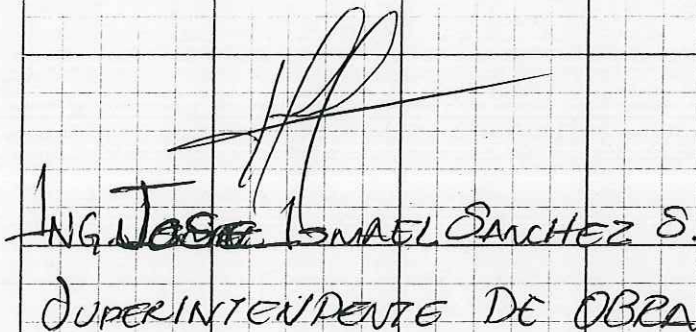 ING. JOSE ISMAEL SANCHEZ S.
SUPERINTENDENTE DE OBRA